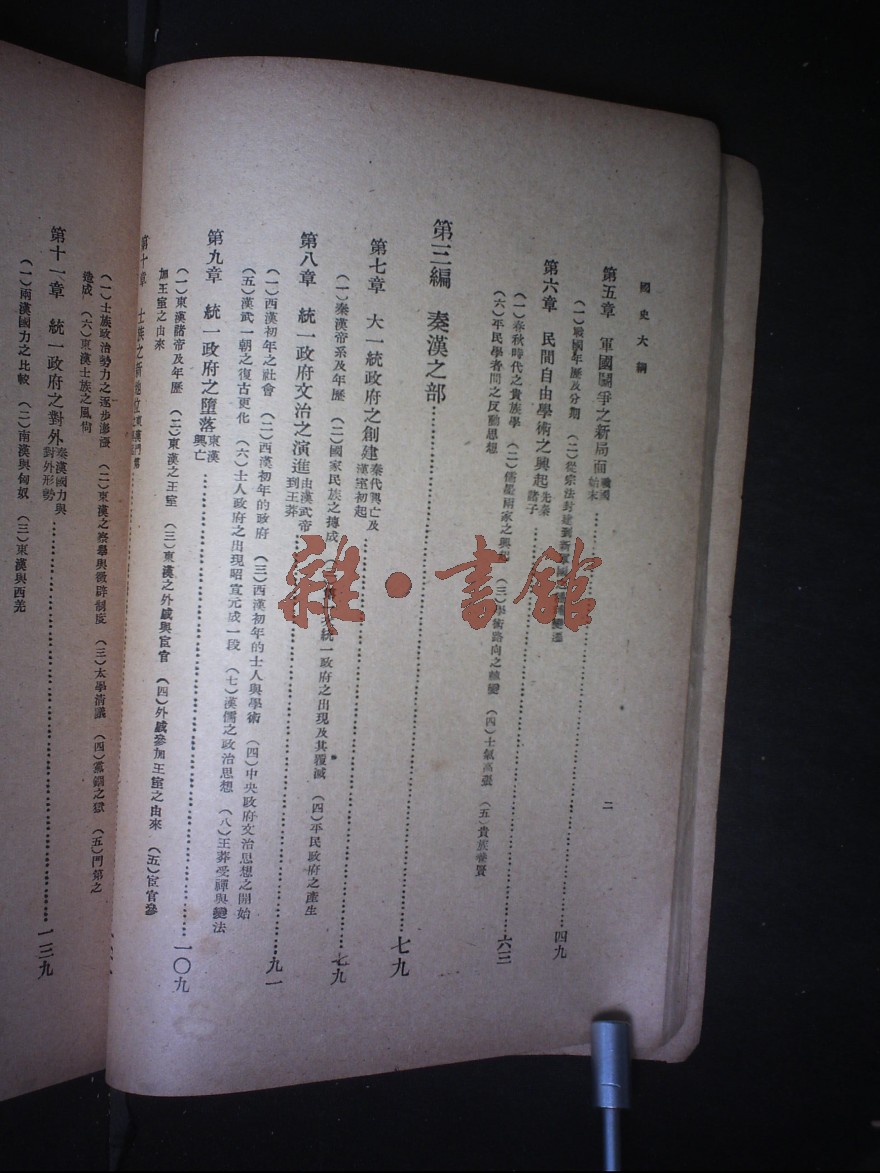 國史大綱
二
第五章 軍國鬭爭之新局面 戰國始末……四九
（一）戰國年歷及分期 （二）從宗法封建到新軍國
第六章 民間自由學術之興起 先秦諸子……六三
（一）春秋時代之貴族學 （二）儒墨兩家之興起 （三）學術路向之轉變 （四）士氣高張 （五）貴族養賢
（六）平民學者間之反動思想
第三編 秦漢之部……七九
第七章 大一統政府之創建 秦代興亡及漢室初起……七九
（一）秦漢帝系及年歷 （二）國家民族之摶成 統一政府之出現及其覆滅 （四）平民政府之產生
第八章 統一政府文治之演進 由漢武帝到王莽……九一
（一）西漢初年之社會 （二）西漢初年的政府 （三）西漢初年的士人與學術 （四）中央政府文治思想之開始
（五）漢武一朝之復古更化 （六）士人政府之出現昭宣元成一段 （七）漢儒之政治思想 （八）王莽受禪與變法
第九章 統一政府之墮落 東漢興亡……一〇九
（一）東漢諸帝及年歷 （二）東漢之王室 （三）東漢之外戚與宦官 （四）外戚參加王室之由來 （五）宦官參
加王室之由來
第十章 士族之新地位
（一）士族政治勢力之逐步膨漲 （二）東漢之察舉與徵辟制度 （三）太學清議 （四）黨錮之獄 （五）門第之
造成 （六）東漢士族之風尚
第十一章 統一政府之對外 秦漢國力與對外形勢……一三九
（一）兩漢國力之比較 （二）南漢與匈奴 （三）東漢與西羌
雜·書館